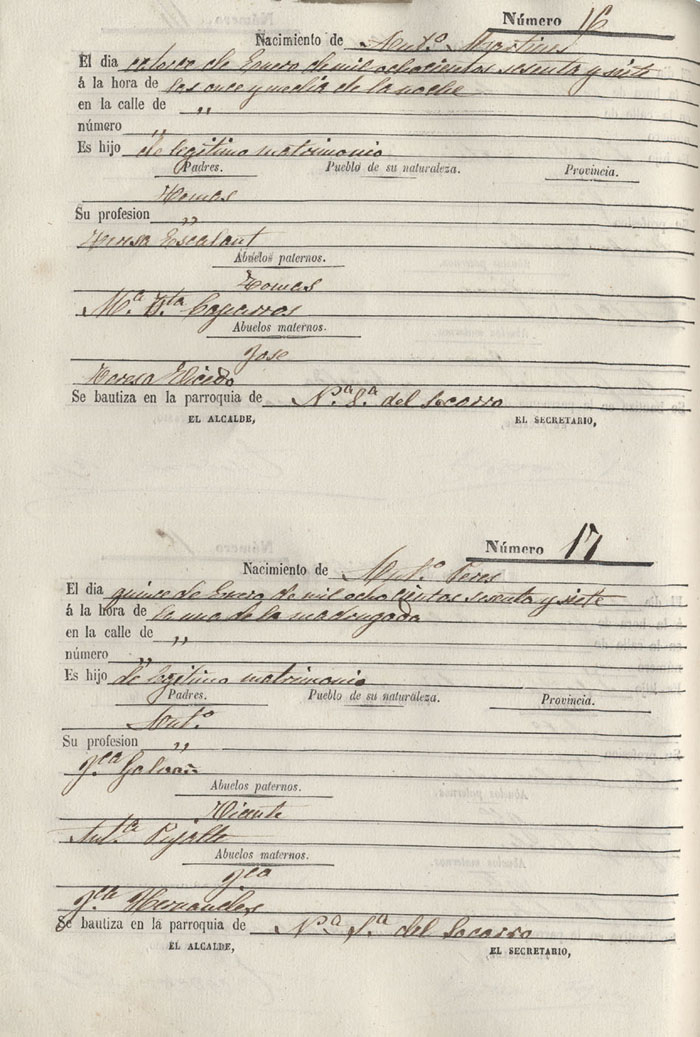 Número 16
Nacimiento de Ant.o Martines
El dia catorce de Enero de mil ochocientos sesenta y siete
á la hora de las once y media de la noche
en la calle de "
número "
Es hijo de legitimo matrimonio
Padres. Pueblo de su naturaleza. Provincia.
Tomas
Su profesion "
Teresa Escalant
Abuelos paternos.
Tomas
M.a V.ta Caparros
Abuelos maternos.
Jose
Teresa
Se bautiza en la parroquia de N.a S.a del Socorro
EL ALCALDE, EL SECRETARIO,
Número 17
Nacimiento de Ant.o Peres
El dia quinse de Enero de mil ochocientos sesenta y siete
á la hora de la una de la madrugada
en la calle de "
número "
Es hijo de legitimo matrimonio
Padres. Pueblo de su naturaleza. Provincia.
Ant.o
Su profesion "
F.ca Galvañ
Abuelos paternos.
Vicente
Ant.a
Abuelos maternos.
F.co
F.ca Hernandes
Se bautiza en la parroquia de N.a S.a del Socorro
EL ALCALDE, EL SECRETARIO,